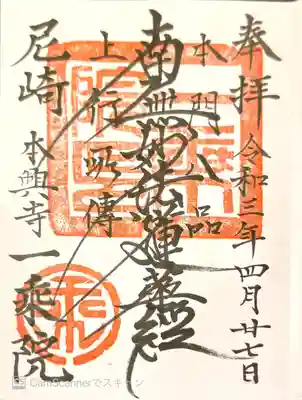 奉拝 令和三年四月廿七日
本門八品
南無妙法蓮華経
上行所傳
尼崎 本興寺 一乗院
CamScannerでスキャン